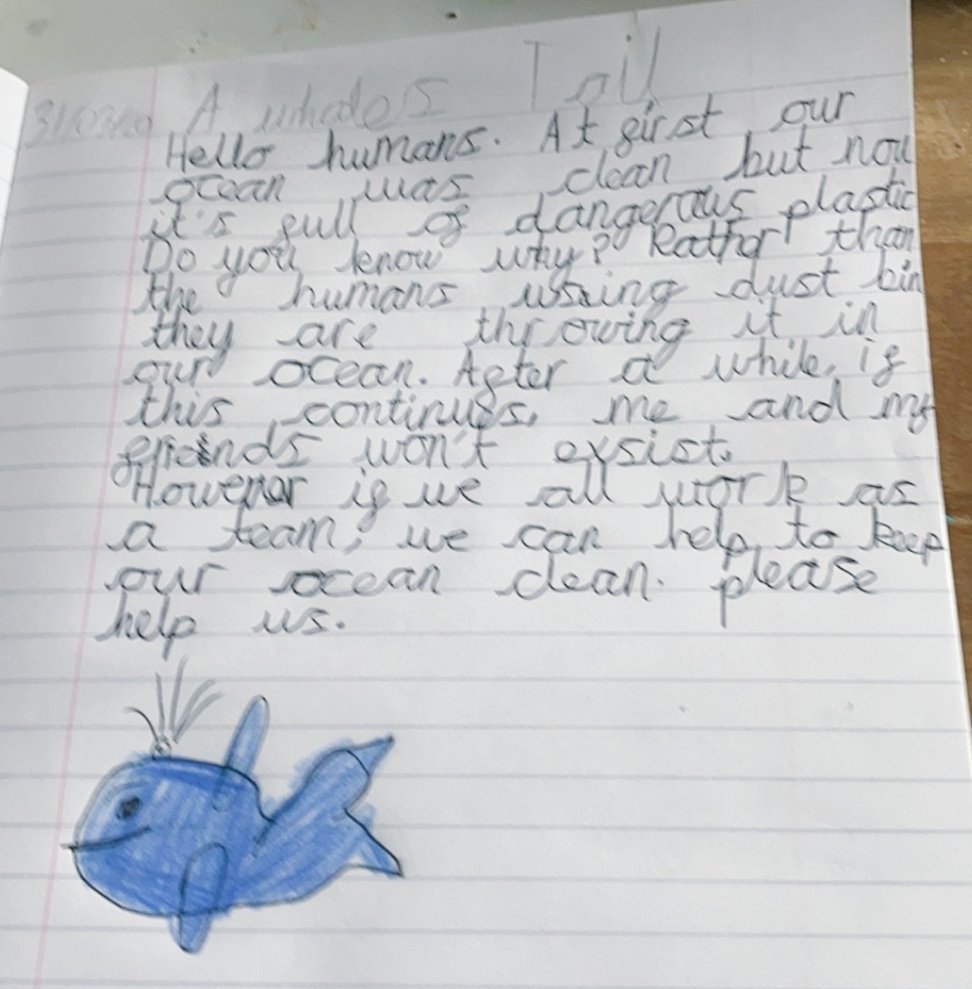 A whales Tail
Hello humans. At first our
ocean was clean but now
it's full of dangerous plastic
Do you know why? Rather than
the humans using dust bin
they are throwing it in
our ocean. After a while, if
this continues, me and my
friends won't exsist.
However if we all work as
a team, we can help to keep
our ocean clean. please
help us.